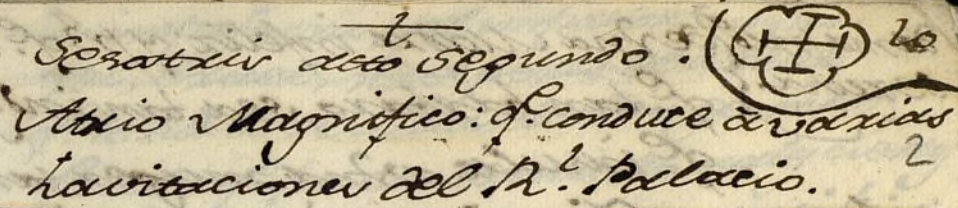 Sesostris acto Segundo: 20
Atrio Magnifico: q.e conduce a varias
havitaciones del R.l Palacio. 2